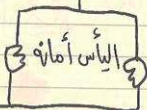 اليأس أمانه